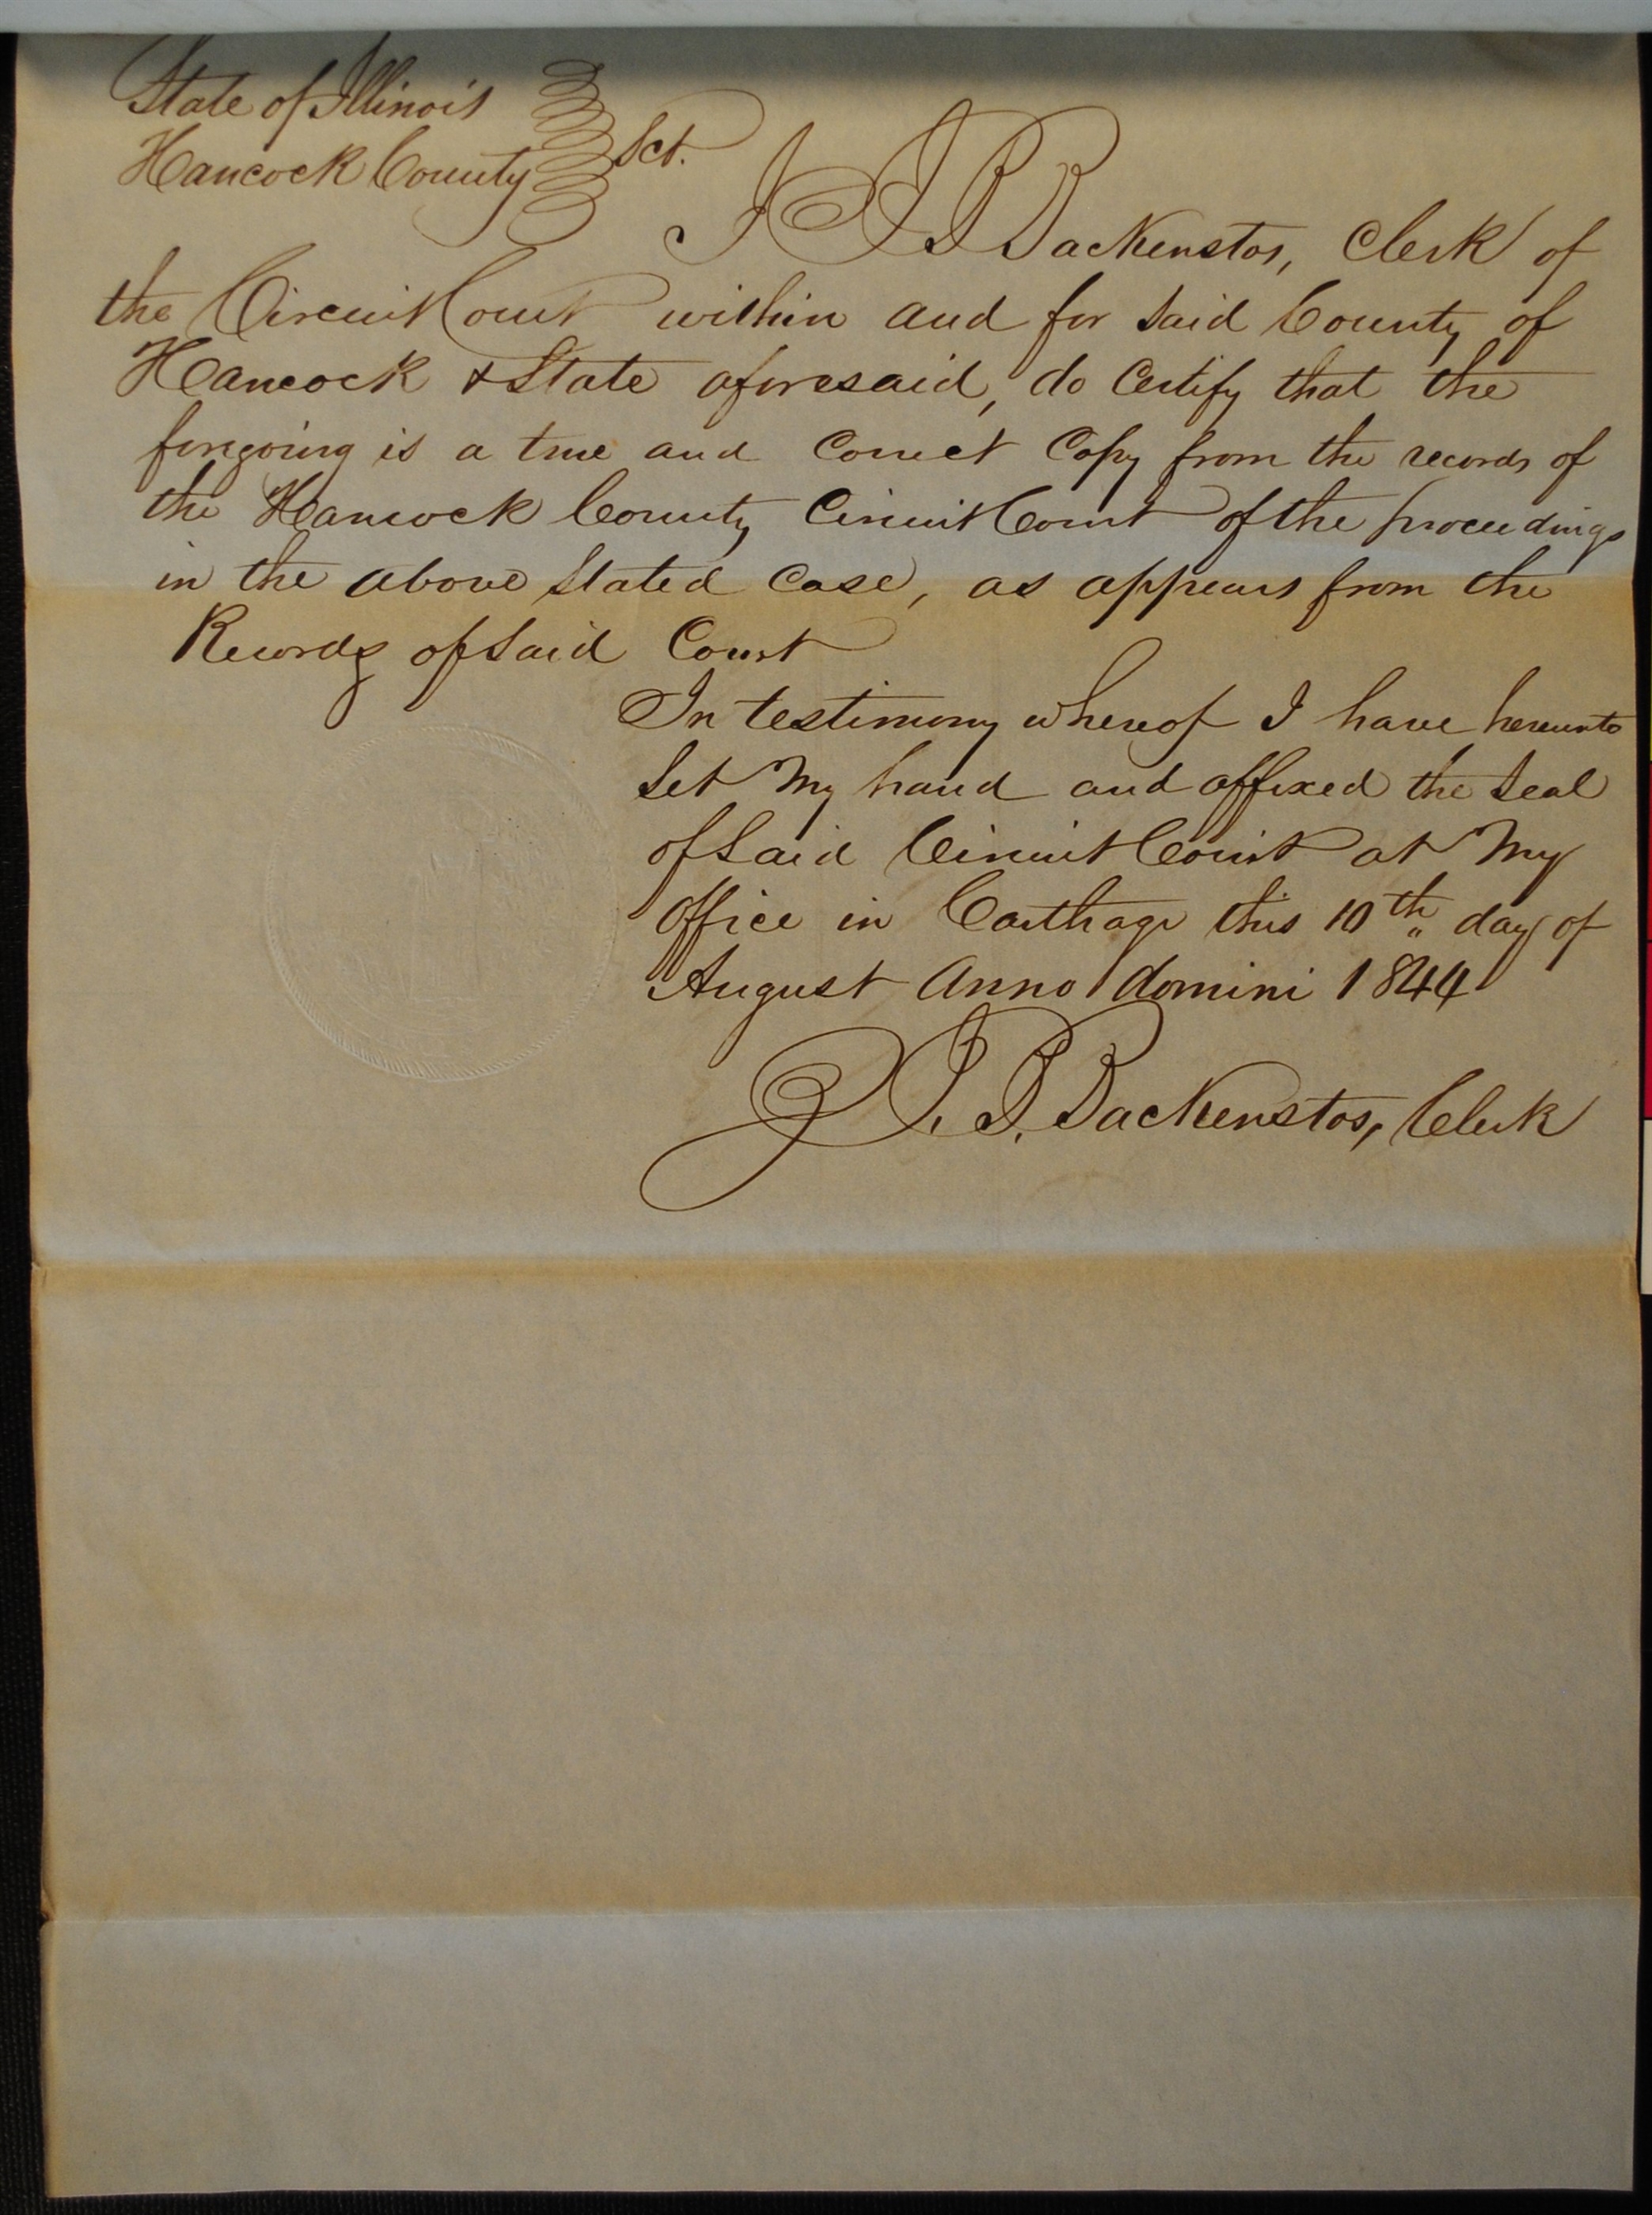 State of Illinois
Hancock County Sct.
I J B Backenstos, Clerk of
the Circuit Court within and for said County of
Hancock & State aforesaid, do Certify that the
foregoing is a true and Correct Copy from the records of
the Hancock County Circuit Court of the proceedings
in the above Stated Case, as appears from the
Records of said Court
In testimony whereof I have hereunto
Set my hand and affixed the Seal
of Said Circuit Court at my
Office in Carthage this 10th day of
August Anno domini 1844
J. B. Backenstos, Clerk